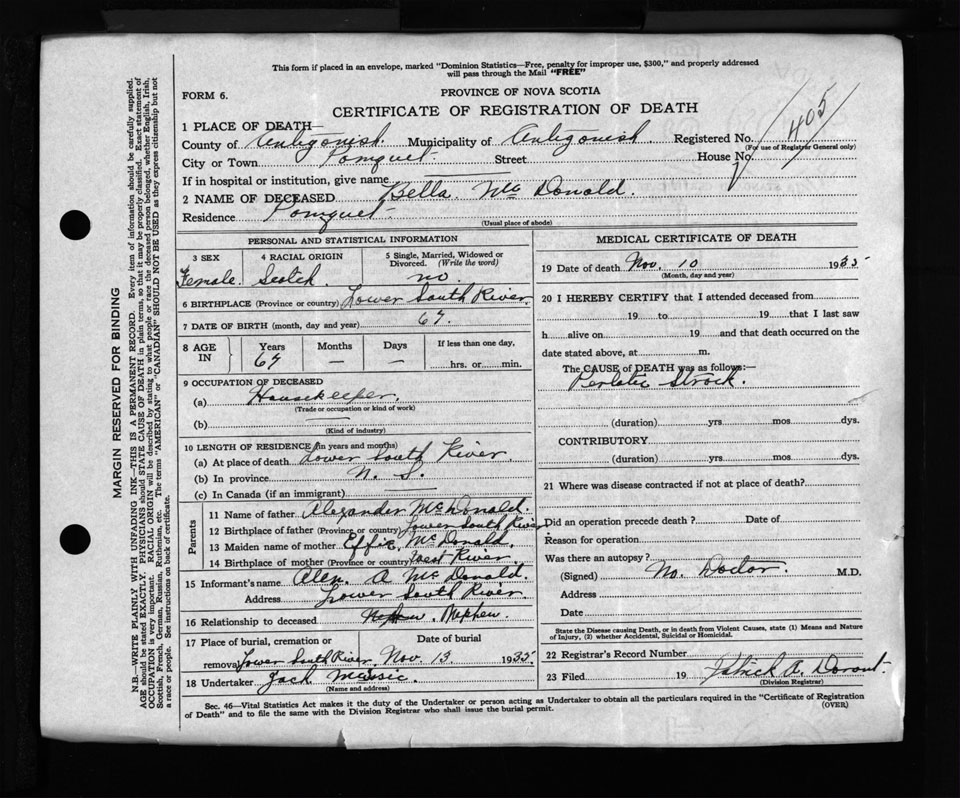 This form if placed in an envelope, marked "Dominion Statistics—Free, penalty for improper use, $300," and properly addressed
will pass through the Mail "FREE"
FORM 6.
PROVINCE OF NOVA SCOTIA
CERTIFICATE OF REGISTRATION OF DEATH
405
1 PLACE OF DEATH—
County of Antigonish. Municipality of Antigonish. Registered No.
(For use of Registrar General only)
City or Town Pomquet. Street House No.
If in hospital or institution, give name
2 NAME OF DECEASED Bella Mc Donald.
Residence Pomquet.
(Usual place of abode)
PERSONAL AND STATISTICAL INFORMATION
3 SEX 4 RACIAL ORIGIN 5 Single, Married, Widowed or Divorced. (Write the word)
Female. Scotch no
6 BIRTHPLACE (Province or country) Lower South River
7 DATE OF BIRTH (month, day and year) 67.
8 AGE IN Years Months Days If less than one day,
67 — — hrs. or min.
9 OCCUPATION OF DECEASED
(a) Housekeeper.
(Trade or occupation or kind of work)
(b) —
(Kind of industry)
10 LENGTH OF RESIDENCE (in years and months)
(a) At place of death Lower South River.
(b) In province N. S.
(c) In Canada (if an immigrant) —
Parents
11 Name of father Alexander McDonald.
12 Birthplace of father (Province or country) Lower South River
13 Maiden name of mother Effie McDonald.
14 Birthplace of mother (Province or country) West River.
15 Informant's name Alex. A McDonald.
Address Lower South River
16 Relationship to deceased Nephew. Nephew.
17 Place of burial, cremation or Date of burial
removal Lower South River. Nov. 13 1935
18 Undertaker Jack
(Name and address)
MEDICAL CERTIFICATE OF DEATH
19 Date of death Nov. 10 1935
(Month, day and year)
20 I HEREBY CERTIFY that I attended deceased from
19 to 19 that I last saw
h alive on 19 and that death occurred on the
date stated above, at m.
The CAUSE OF DEATH was as follows:—
Strock.
(duration) yrs. mos. dys.
CONTRIBUTORY
(duration) yrs. mos. dys.
21 Where was disease contracted if not at place of death?
Did an operation precede death? Date of
Reason for operation
Was there an autopsy?
(Signed) No. Doctor. M.D.
Address
Date
State the Disease causing Death, or in death from Violent Causes, state (1) Means and Nature
of Injury, (2) whether Accidental, Suicidal or Homicidal.
22 Registrar's Record Number
23 Filed 19 Patrick A.
(Division Registrar)
Sec. 46—Vital Statistics Act makes it the duty of the Undertaker or person acting as Undertaker to obtain all the particulars required in the "Certificate of Registration
of Death" and to file the same with the Division Registrar who shall issue the burial permit.
(OVER)
MARGIN RESERVED FOR BINDING
N.B.—WRITE PLAINLY WITH UNFADING INK—THIS IS A PERMANENT RECORD. Every item of information should be carefully supplied.
AGE should be stated EXACTLY. PHYSICIANS should STATE CAUSE OF DEATH in plain terms, so that it may be properly classified. Exact statement of
OCCUPATION is very important. RACIAL ORIGIN will be described by stating to what people or race the deceased person belonged, whether English, Irish,
Scottish, French, German, Russian, Ruthenian, etc. The terms "AMERICAN" or "CANADIAN" SHOULD NOT BE USED as they express citizenship but not
a race or people. See instructions on back of certificate.